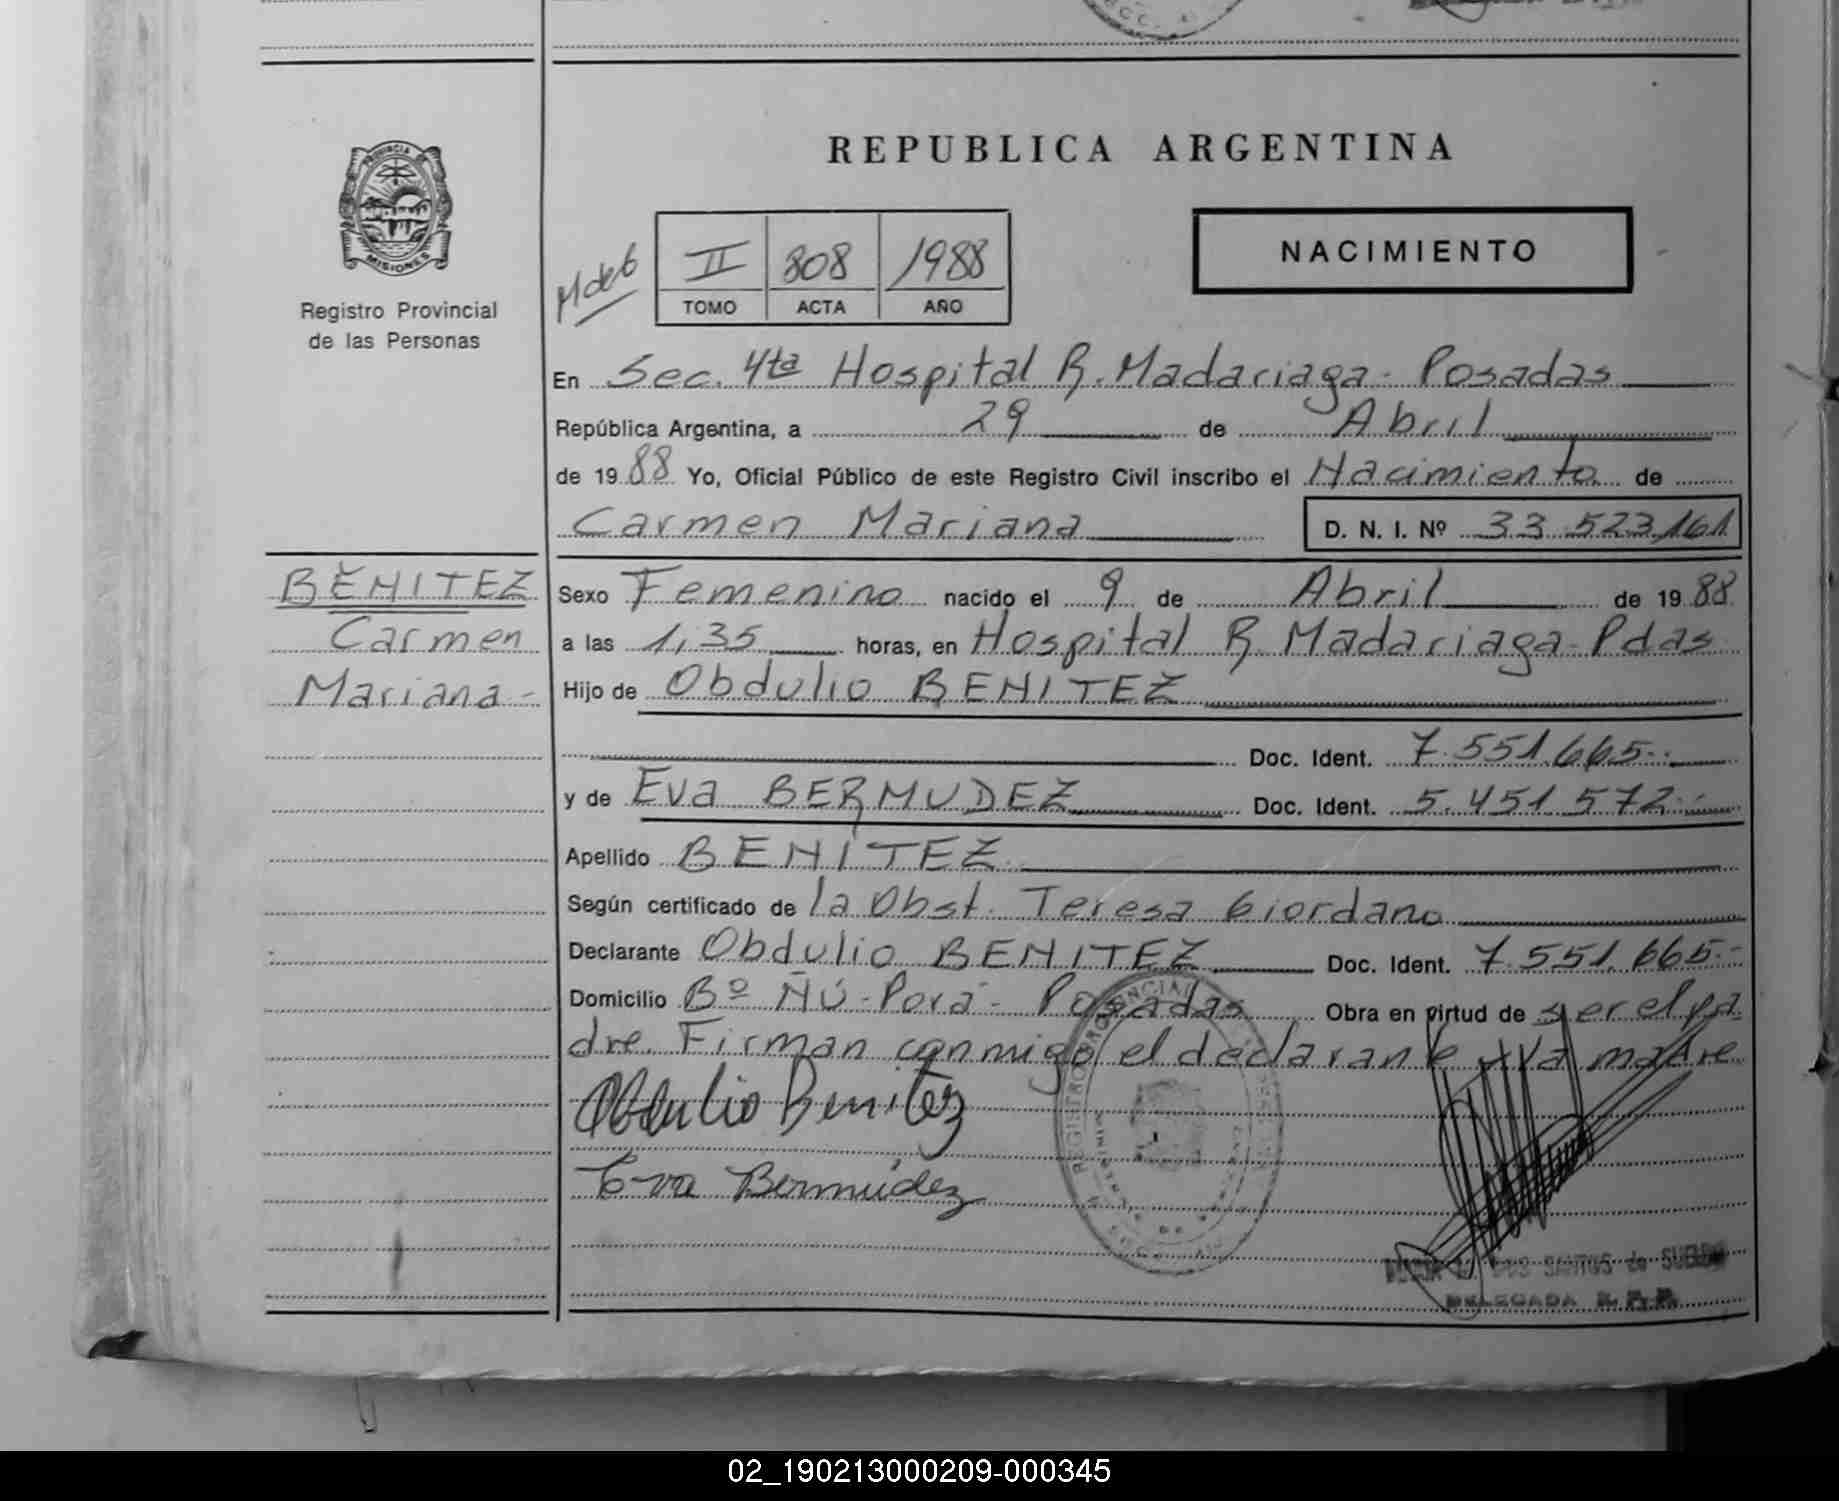 REPUBLICA ARGENTINA
PROVINCIA DE
MISIONES
Registro Provincial
de las Personas
II 808 1988
TOMO ACTA AÑO
NACIMIENTO
En Sec. 4ta Hospital R. Madariaga - Posadas
República Argentina, a 29 de Abril
de 1988 Yo, Oficial Público de este Registro Civil inscribo el Nacimiento de
Carmen Mariana D. N. I. Nº 33.523.161
BENITEZ
Carmen
Mariana -
Sexo Femenino nacido el 9 de Abril de 1988
a las 1,35 horas, en Hospital R. Madariaga - Pdas
Hijo de Obdulio BENITEZ
Doc. Ident. 7.551.665.-
y de Eva BERMUDEZ Doc. Ident. 5.451.572.-
Apellido BENITEZ
Según certificado de la Obst. Teresa Giordano
Declarante Obdulio BENITEZ Doc. Ident. 7.551.665.-
Domicilio Bº ÑÚ-Porá - Posadas Obra en virtud de ser el pa
dre. Firman conmigo el declarante y la madre
Obdulio Benitez
Eva Bermúdez
DOS SANTOS de SUELDO
DELEGADA R. P. P.
02_190213000209-000345